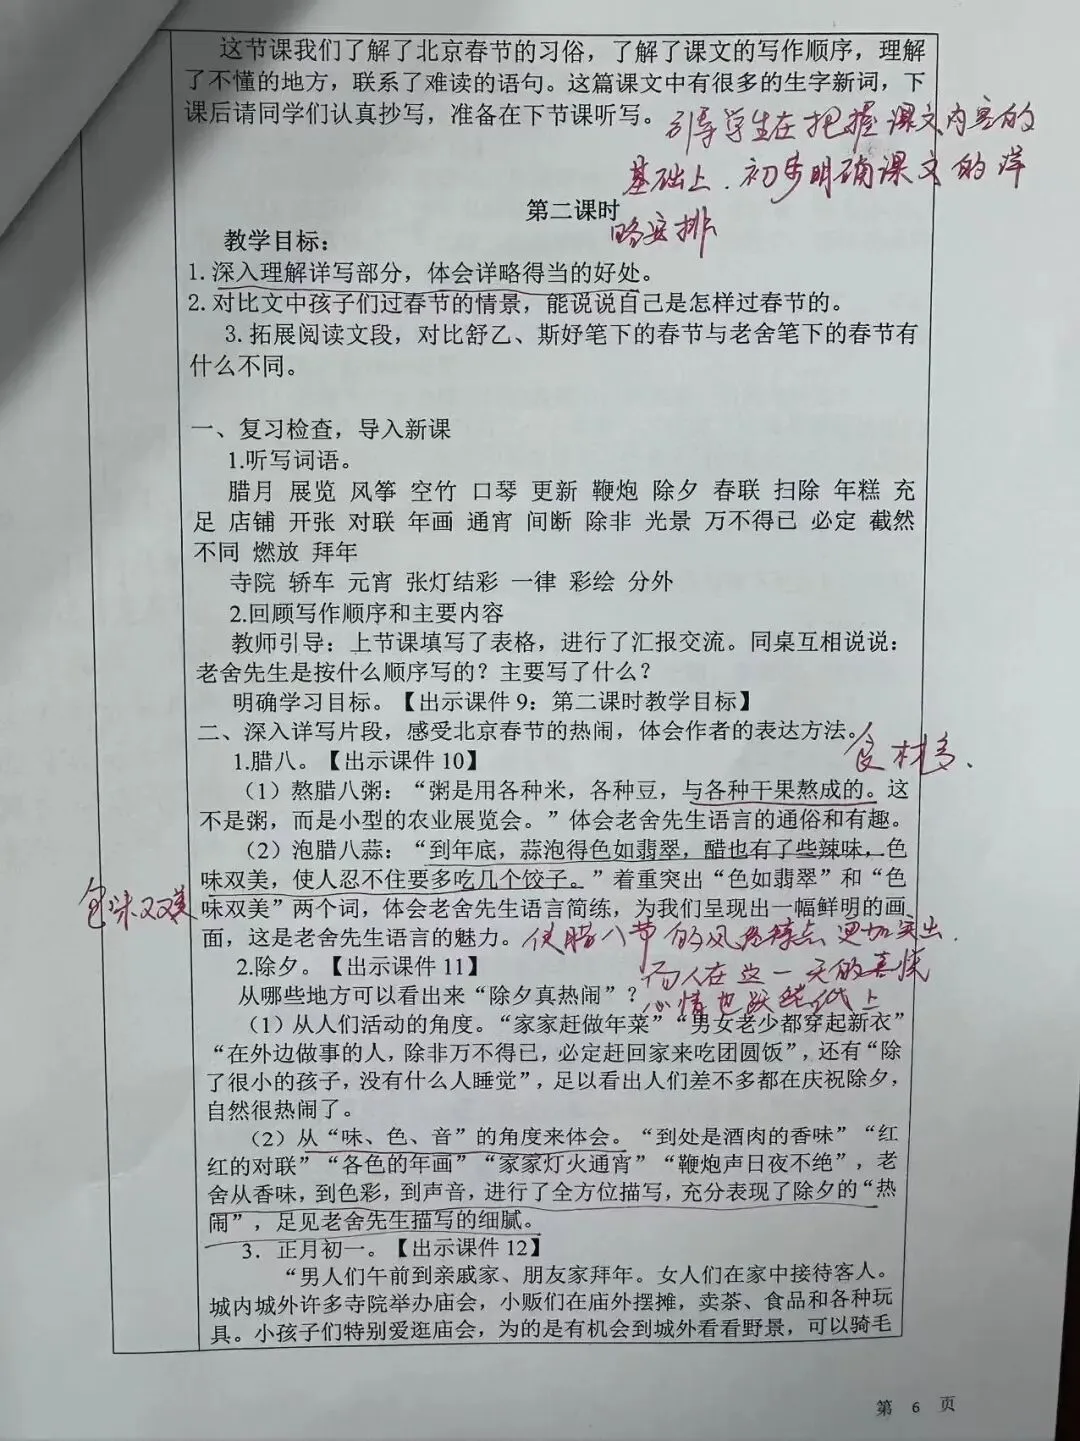 这节课我们了解了北京春节的习俗，了解了课文的写作顺序，理解
了不懂的地方，联系了难读的语句。这篇课文中有很多的生字新词，下
课后请同学们认真抄写，准备在下节课听写。
引导学生在把握课文内容的
基础上.初步明确课文的详
略安排
第二课时
教学目标：
1. 深入理解详写部分，体会详略得当的好处。
2. 对比文中孩子们过春节的情景，能说说自己是怎样过春节的。
3. 拓展阅读文段，对比舒乙、斯妤笔下的春节与老舍笔下的春节有
什么不同。
一、复习检查，导入新课
1.听写词语。
腊月 展览 风筝 空竹 口琴 更新 鞭炮 除夕 春联 扫除 年糕 充
足 店铺 开张 对联 年画 通宵 间断 除非 光景 万不得已 必定 截然
不同 燃放 拜年
寺院 轿车 元宵 张灯结彩 一律 彩绘 分外
2.回顾写作顺序和主要内容
教师引导：上节课填写了表格，进行了汇报交流。同桌互相说说：
老舍先生是按什么顺序写的？主要写了什么？
明确学习目标。【出示课件 9：第二课时教学目标】
二、深入详写片段，感受北京春节的热闹，体会作者的表达方法。
食材多、
1.腊八。【出示课件 10】
（1）熬腊八粥：“粥是用各种米，各种豆，与各种干果熬成的。这
不是粥，而是小型的农业展览会。”体会老舍先生语言的通俗和有趣。
（2）泡腊八蒜：“到年底，蒜泡得色如翡翠，醋也有了些辣味，色
味双美，使人忍不住要多吃几个饺子。”着重突出“色如翡翠”和“色
色味双美
味双美”两个词，体会老舍先生语言简练，为我们呈现出一幅鲜明的画
面，这是老舍先生语言的魅力。
使腊八节的风俗特点更加突出.
而人在这一天的喜悦
心情也跃然纸上
2.除夕。【出示课件 11】
从哪些地方可以看出来“除夕真热闹”？
（1）从人们活动的角度。“家家赶做年菜”“男女老少都穿起新衣”
“在外边做事的人，除非万不得已，必定赶回家来吃团圆饭”，还有“除
了很小的孩子，没有什么人睡觉”，足以看出人们差不多都在庆祝除夕，
自然很热闹了。
（2）从“味、色、音”的角度来体会。“到处是酒肉的香味”“红
红的对联”“各色的年画”“家家灯火通宵”“鞭炮声日夜不绝”，老
舍从香味，到色彩，到声音，进行了全方位描写，充分表现了除夕的“热
闹”，足见老舍先生描写的细腻。
3. 正月初一。【出示课件 12】
“男人们午前到亲戚家、朋友家拜年。女人们在家中接待客人。
城内城外许多寺院举办庙会，小贩们在庙外摆摊，卖茶、食品和各种玩
具。小孩子们特别爱逛庙会，为的是有机会到城外看看野景，可以骑毛
第 6 页